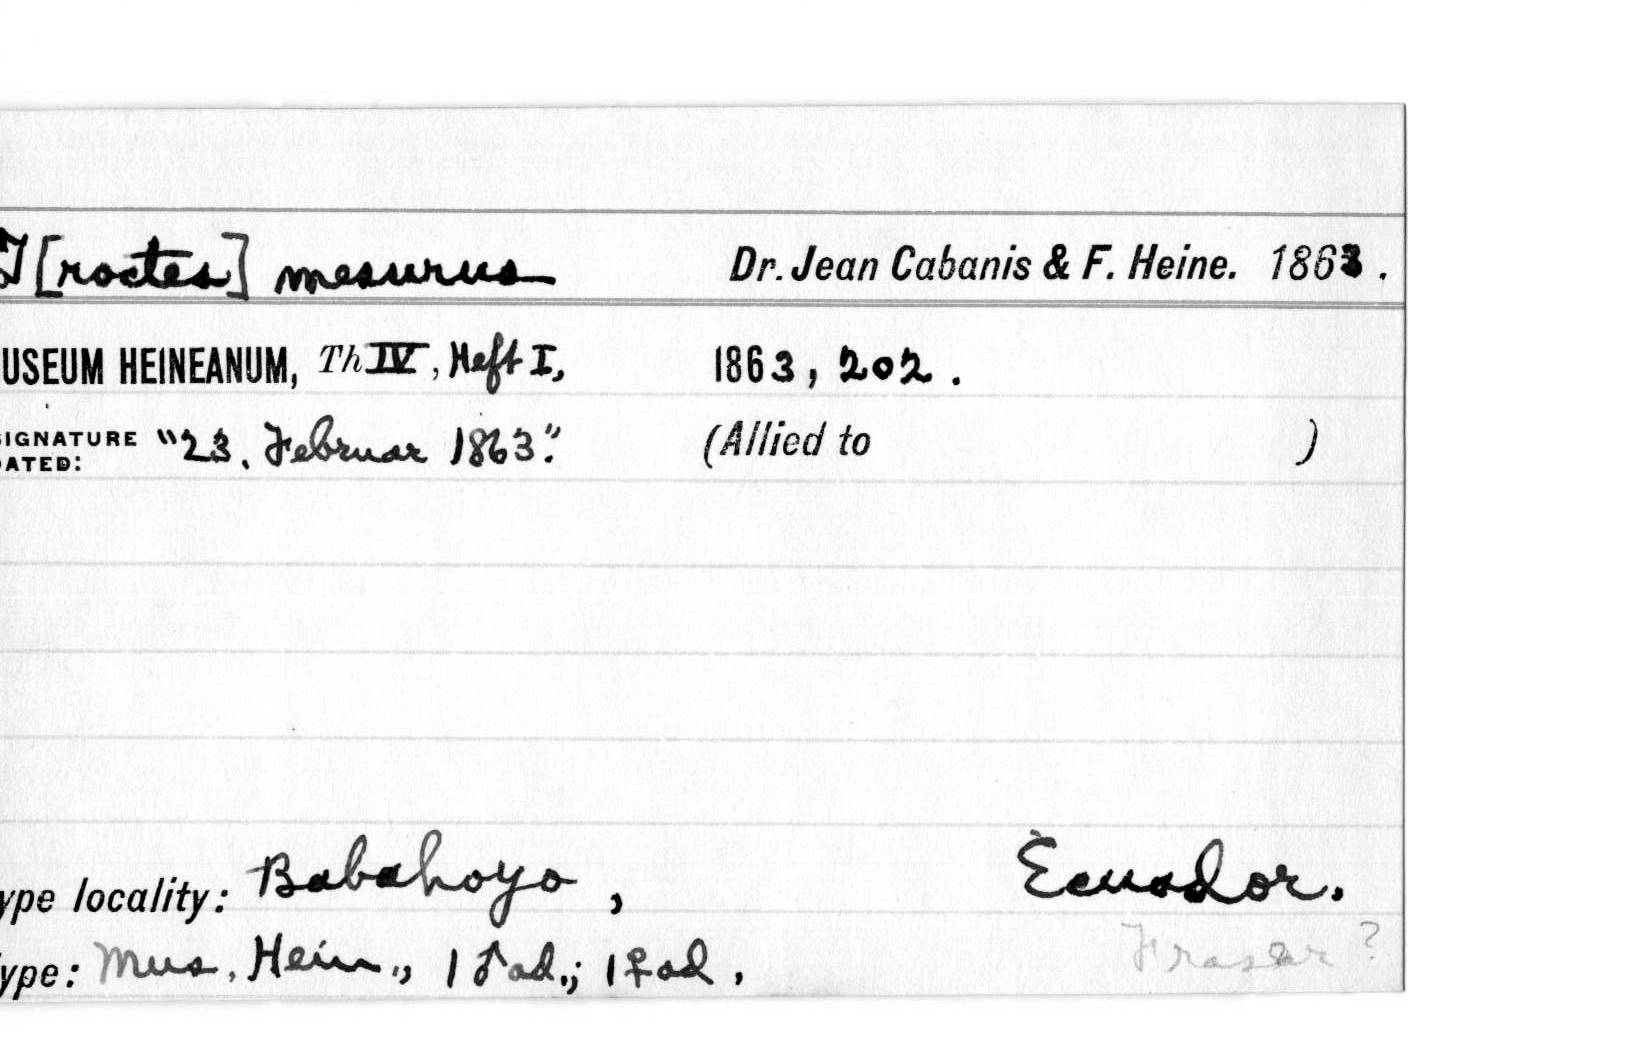 T[roctes] mesurus Dr. Jean Cabanis & F. Heine. 1863.
USEUM HEINEANUM, Th IV, Heft I, 1863, 202.
SIGNATURE "23. Februar 1863". (Allied to )
ATED:
ype locality: Babahoyo, Ecuador.
ype: Mus. Hein., 1♂ad.; 1♀ad. Fraser?